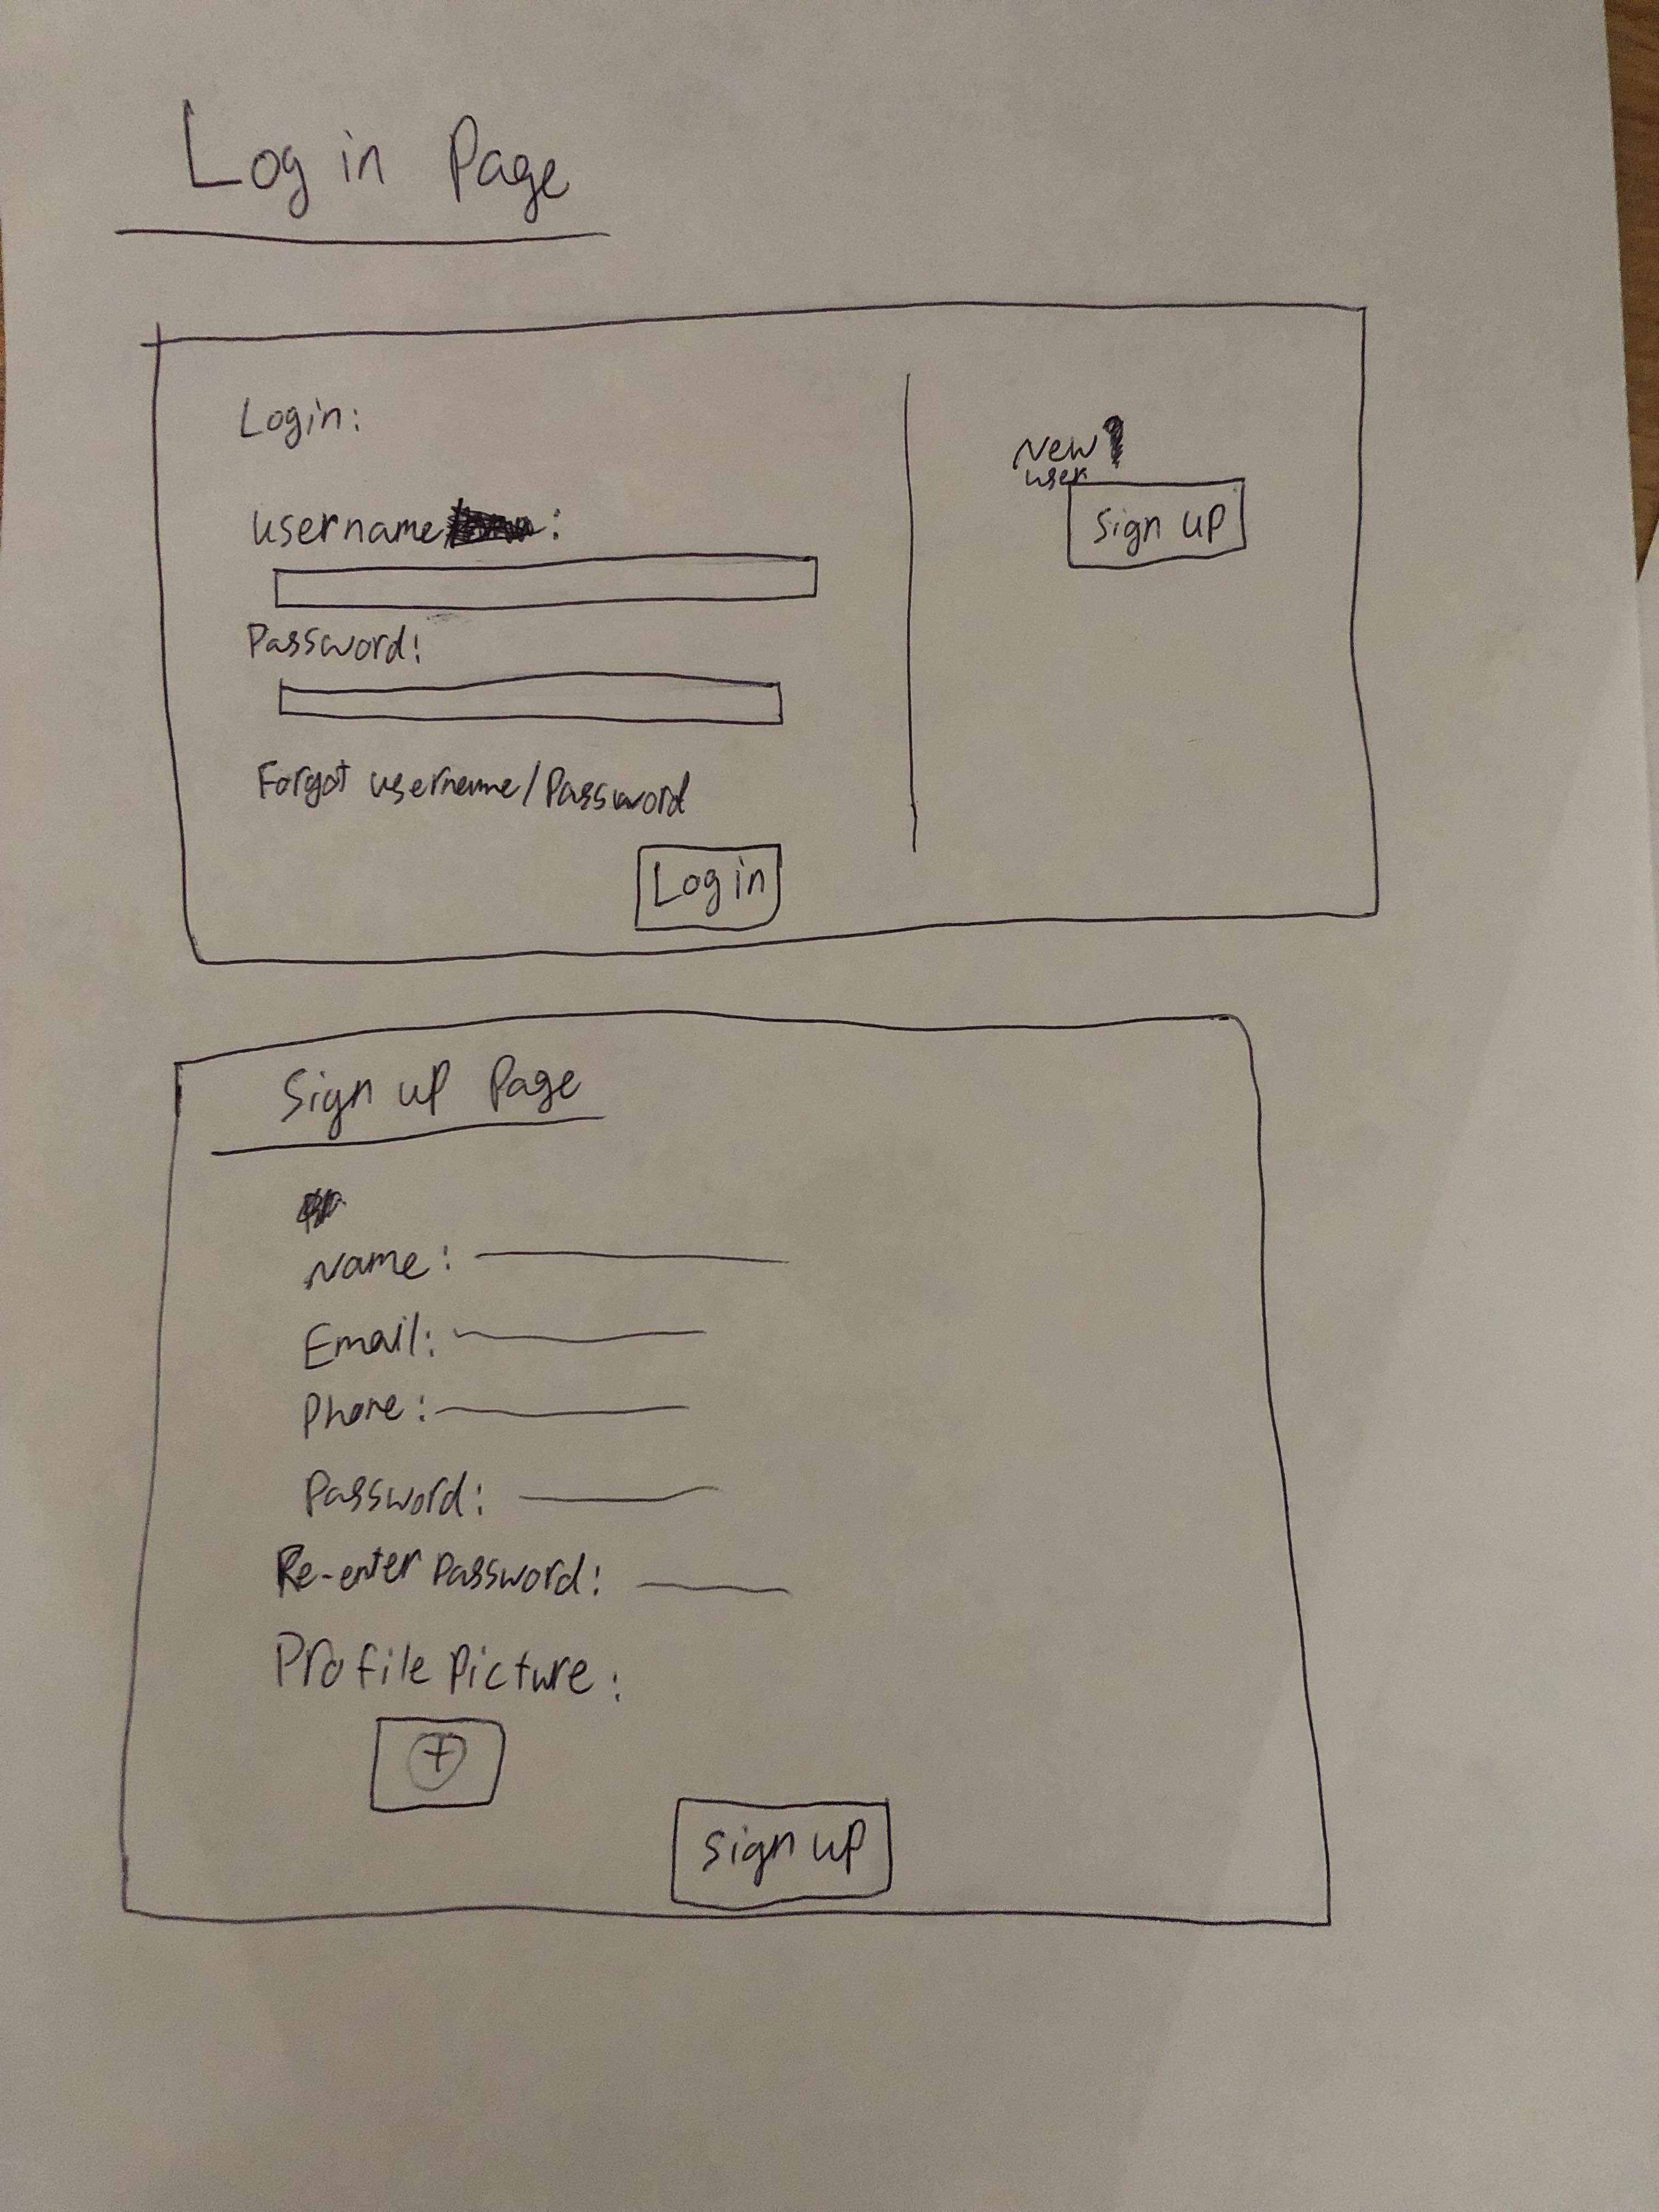 Log in Page
Login:
username:
Password:
Forgot username/Password
Log in
New
user
Sign up
Sign up Page
Name:
Email:
Phone:
Password:
Re-enter Password:
Profile Picture:
+
Sign up